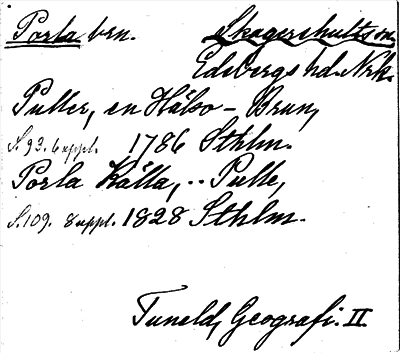 Porla brn. Skagershults sn.
Edsbergs hd. Nrk.
Puller, en Hälso-Brun,
S. 93. 6 uppl. 1786 Sthlm.
Porla Källa, .. Pulle,
S. 109. 8 uppl. 1828 Sthlm.
Tuneld, Geografi. II.